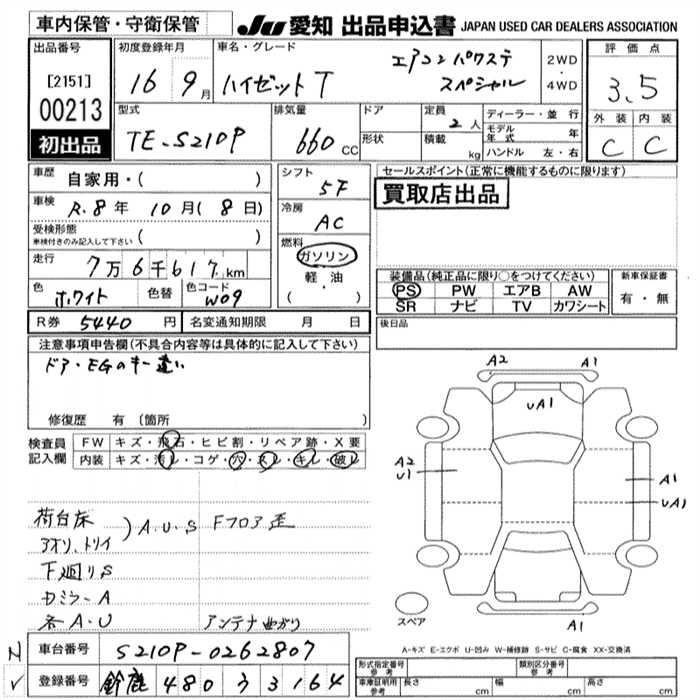 車内保管・守衛保管
JU 愛知 出品申込書 JAPAN USED CAR DEALERS ASSOCIATION
出品番号
[2151]
00213
初出品
初度登録年月
16 9月
車名・グレード
ハイゼットT
エアコン パワステ
スペシャル
2WD
・
4WD
評価点
3.5
外装 内装
C C
型式
TE-S210P
排気量
660 CC
ドア
形状
定員 2 人
積載 kg
ディーラー・並行
モデル年式 年
ハンドル 左・右
車歴 自家用・( )
車検 R.8年 10月(8日)
受検形態
車検付きのみ記入して下さい ( )
走行 7万6千617km
色 ホワイト 色替 色コード W09
シフト
5F
冷房
AC
燃料
ガソリン
軽・油
( ・ )
セールスポイント(正常に機能するものに限ります)
買取店出品
装備品(純正品に限り○をつけてください)
PS PW エアB AW
SR ナビ TV カワシート
新車保証書
有・無
R券 5440 円 名変通知期限 月 日
後日品
注意事項申告欄(不具合内容等は具体的に記入して下さい)
ドア・EGのキー違い
修復歴 有〔箇所 〕
検査員
記入欄
FW キズ・飛石・ヒビ割・リペア跡・X要
内装 キズ・汚レ・コゲ・穴・スレ・キレ・破レ
荷台床
アオリ、トリイ
)A.U.S Fフロア歪
下廻りS
カミラーA
各A・U アンテナ曲がり
A2 A1
UA1
A2
U1
A1
UA1
A1
スペア
A-キズ E-エクボ U-凹み W-補修跡 S-サビ C-腐食 XX-交換済
N
車台番号 S210P-0262807
登録番号 鈴鹿 480 う 3164
形式指定番号
参考
類別区分番号
参考
車庫証明用
参考
長さ cm 幅 cm 高さ cm